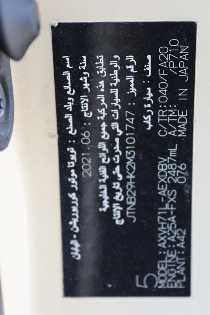 اسم الصانع وبلد الصنع : تويوتا موتور كوربوريشن - اليابان
سنة وشهر الانتاج : 2021.06
تطابق هذه المركبة جميع اللوائح الفنية الخليجية
والوطنية للسيارات التي صدرت حتى تاريخ الإنتاج
الرقم المميز : JTNB29HK2M3101747
صنف : سيارة ركاب
5
MODEL: AXVH71L-AEXGBV
ENGINE: A25A-FXS 2487mL
PLANT: A42 076
C/TR: 040/FA20
A/TM: /P710
MADE IN JAPAN